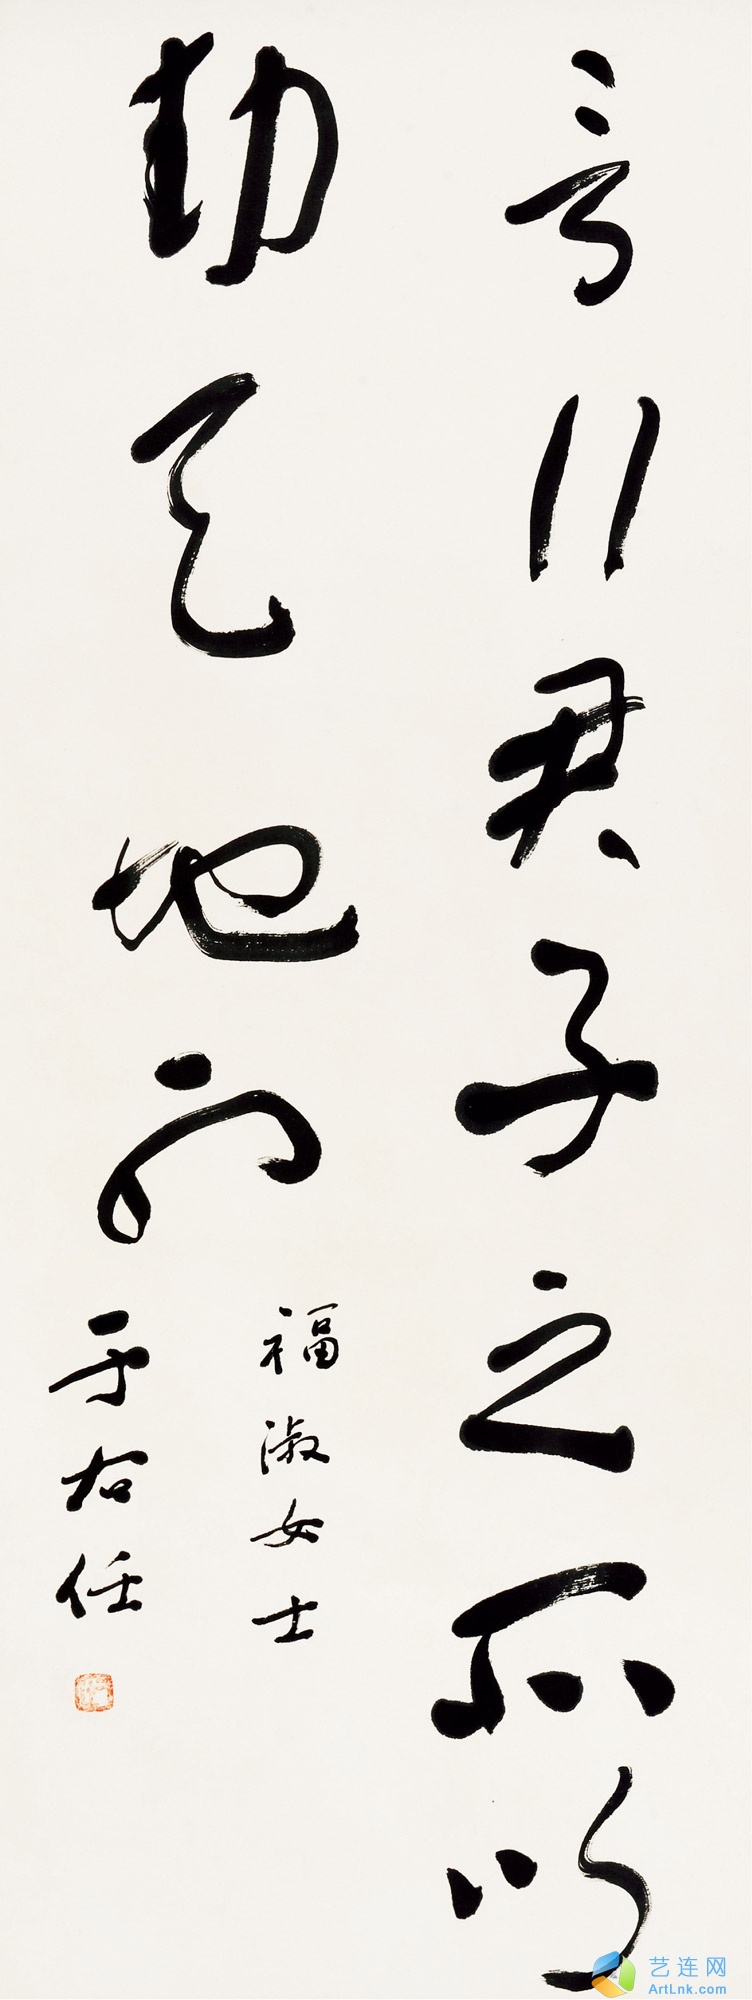 言行君子之所以
動天地也
福淑女士
于右任
艺连网
ArtLnk.com